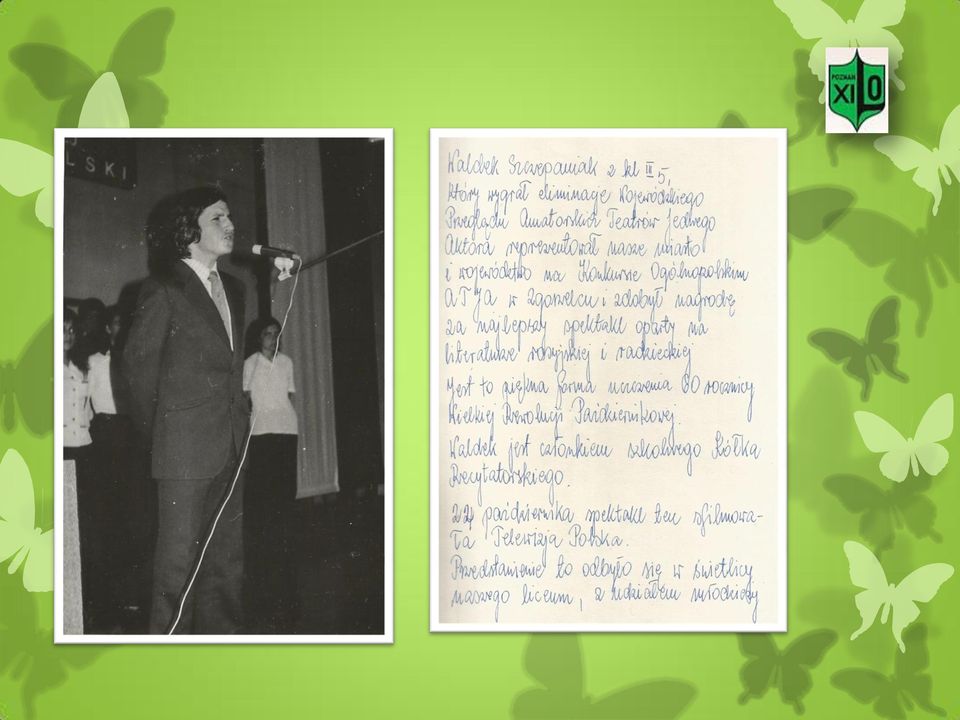 LSKI
POZNAŃ
XI LO
Waldek Szczepaniak z kl III 5,
który wygrał eliminacje Wojewódzkiego
Przeglądu Amatorskich Teatrów Jednego
Aktora reprezentował nasze miasto
i województwo na Konkursie Ogólnopolskim
ATJA w Zgorzelcu i zdobył nagrodę
za najlepszy spektakl oparty na
literaturze rosyjskiej i radzieckiej
Jest to piękna forma uczczenia 60 rocznicy
Wielkiej Rewolucji Październikowej
Waldek jest członkiem szkolnego Kółka
Recytatorskiego.
22 października spektakl ten sfilmowa-
ła Telewizja Polska.
Przedstawienie to odbyło się w świetlicy
naszego liceum, z udziałem młodzieży